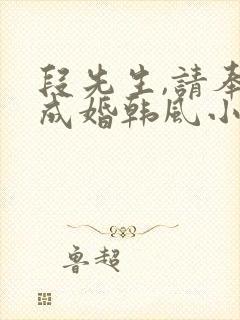 段先生,請奉
成婚韩風小
鲁超